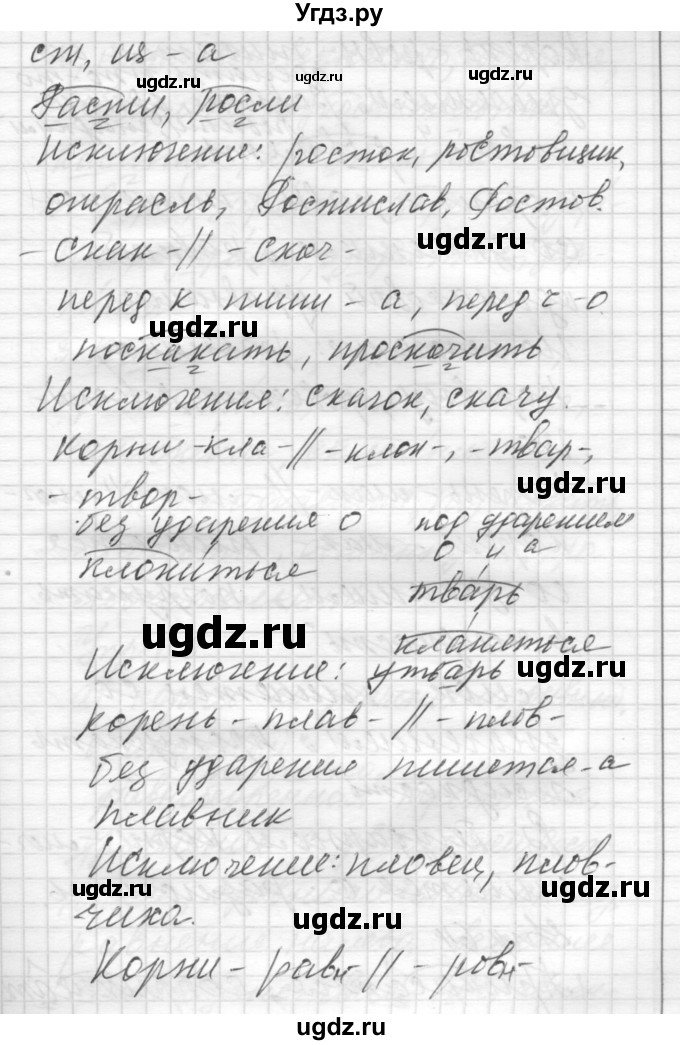 Угдз.ру
ст, щ - а
ugdz.ru ugdz.ru
Расти, росли
Исключение: росток, ростовщик,
отрасль, Ростислав, Ростов.
ugdz.ru
- скак - // - скоч -
перед к пиши - а, перед ч - о
ugdz.ru
поскакать, проскочить
Исключения: скачок, скачу.
Корни - кла - // - клон -, - твар -,
ugdz.ru
- твор -
без ударения о под ударением
о и а
клониться
тварь
ugdz.ru
кланяться
Исключение: утварь
ugdz.ru
корень - плав - // - плов -
без ударения пишется - а
плавник
Исключение: пловец, плов-
ugdz.ru ugdz.ru
чиха.
ugdz.ru
Корни - равн // - ровн -
ugdz.ru